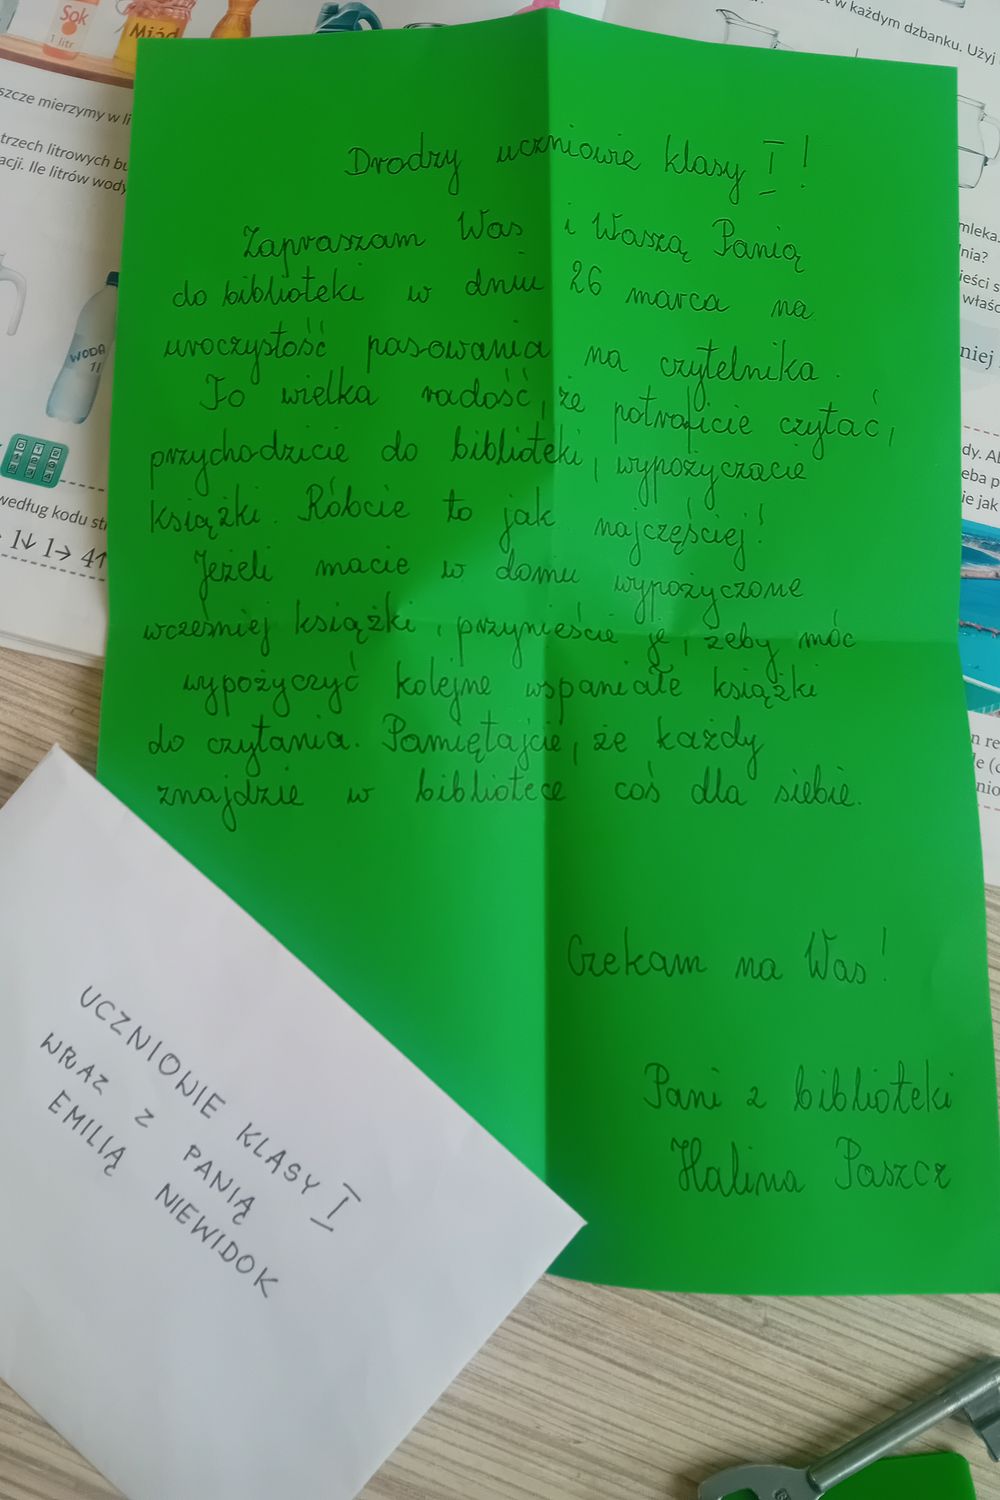 Sok
1 litr
Miód
szcze mierzymy w li
trzech litrowych bu
acji. Ile litrów wody
WODA
1l
według kodu st
1↓ 1→ 4↑
w każdym dzbanku. Użyj
mleka.
lnia?
ieści s
właśc
niej
dy. Al
eba p
ie jak
n re
le (c
nio
Drodzy uczniowie klasy I!
Zapraszam Was i Waszą Panią
do biblioteki w dniu 26 marca na
uroczystość pasowania na czytelnika.
To wielka radość, że potraficie czytać,
przychodzicie do biblioteki, wypożyczacie
książki. Róbcie to jak najczęściej!
Jeżeli macie w domu wypożyczone
wcześniej książki, przynieście je, żeby móc
wypożyczyć kolejne wspaniałe książki
do czytania. Pamiętajcie, że każdy
znajdzie w bibliotece coś dla siebie.
Czekam na Was!
Pani z biblioteki
Halina Paszcz
UCZNIOWIE KLASY I
WRAZ Z PANIĄ
EMILIĄ NIEWIDOK